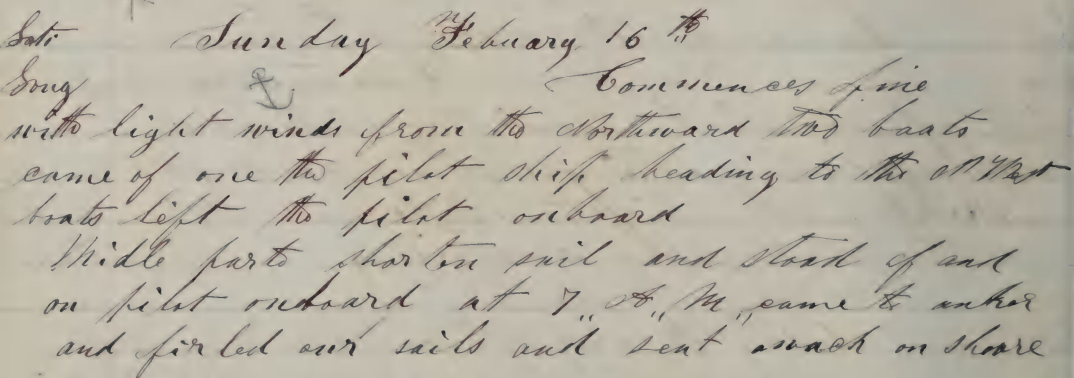 Lati Sunday Febuary 16 th
Long Commences fine
with light winds from the Northward two boats
came of one the pilot ship heading to the N West
boats left the pilot onboard
Midle parts shorten sail and stood of and
on pilot onboard at 7,, A,, M,, came to anker
and firled our sails and sent awach on shoare